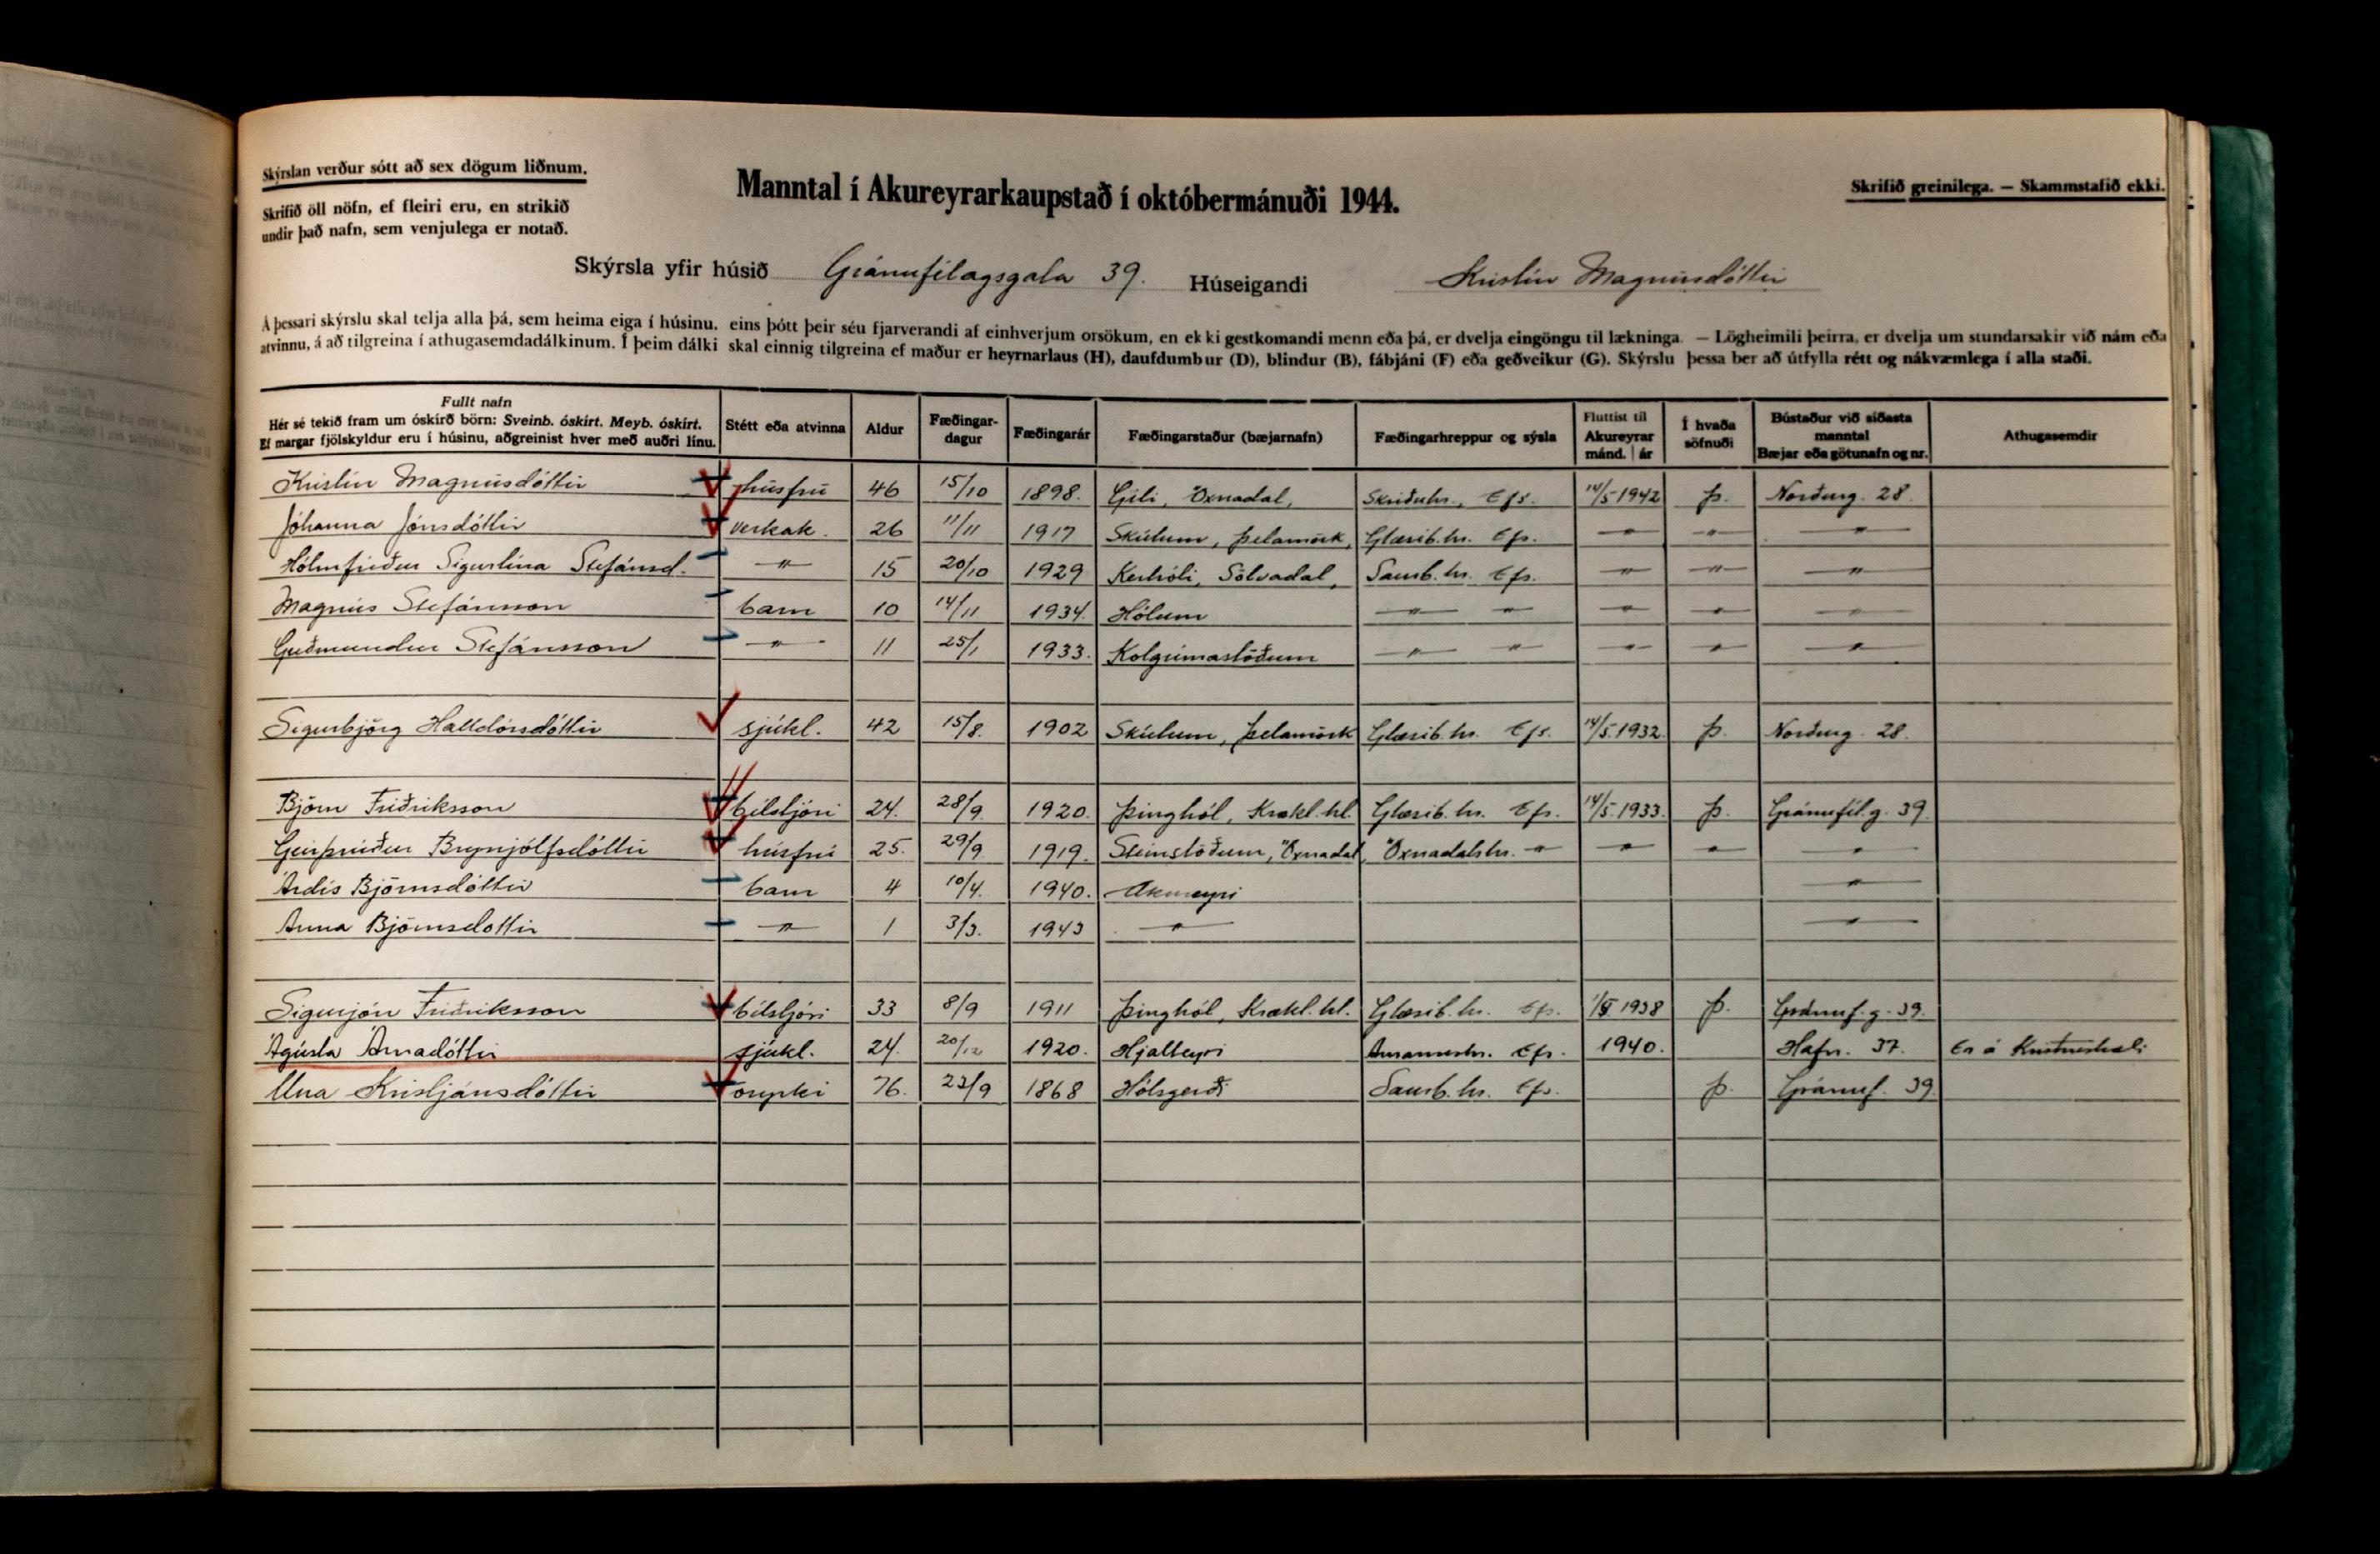 Skýrslan verður sótt að sex dögum liðnum.
Skrifið öll nöfn, ef fleiri eru, en strikið
undir það nafn, sem venjulega er notað.
Manntal í Akureyrarkaupstað í októbermánuði 1944.
Skrifið greinilega. — Skammstafið ekki.
Skýrsla yfir húsið Gránufélagsgata 39. Húseigandi Kristín Magnúsdóttir
Á þessari skýrslu skal telja alla þá, sem heima eiga í húsinu, eins þótt þeir séu fjarverandi af einhverjum orsökum, en ekki gestkomandi menn eða þá, er dvelja eingöngu til lækninga. — Lögheimili þeirra, er dvelja um stundarsakir við nám eða
atvinnu, á að tilgreina í athugasemdadálkinum. Í þeim dálki skal einnig tilgreina ef maður er heyrnarlaus (H), daufdumbur (D), blindur (B), fábjáni (F) eða geðveikur (G). Skýrslu þessa ber að útfylla rétt og nákvæmlega í alla staði.
Fullt nafn
Hér sé tekið fram um óskírð börn: Sveinb. óskírt. Meyb. óskírt.
Ef margar fjölskyldur eru í húsinu, aðgreinist hver með auðri línu.
Stétt eða atvinna
Aldur
Fæðingar-
dagur
Fæðingarár
Fæðingarstaður (bæjarnafn)
Fæðingarhreppur og sýsla
Fluttist til
Akureyrar
mánd. | ár
Í hvaða
söfnuði
Bústaður við síðasta
manntal
Bæjar eða götunafn og nr.
Athugasemdir
Kristín Magnúsdóttir húsfrú 46 15/10 1898. Gili, Öxnadal, Skriðuhr., Efs. 14/5 1942 þ. Norðurg. 28.
Jóhanna Jónsdóttir verkak. 26 11/11 1917 Skútum, Þelamörk, Glæsib.hr. Efs. — " — — " — — " —
Hólmfríður Sigurlína Stefánsd. — " — 15 20/10 1929 Kerhóli, Sölvadal, Saurb.hr. Efs. — " — — " — — " —
Magnús Stefánsson barn 10 14/11 1934. Hólum — " — — " — — " — — " — — " —
Guðmundur Stefánsson — " — 11 25/1 1933. Kolgrímastöðum — " — — " — — " — — " — — " —
Sigurbjörg Halldórsdóttir sjúkl. 42 15/8. 1902 Skútum, Þelamörk Glæsib.hr. Efs. 14/5 1932. þ. Norðurg. 28.
Björn Friðriksson bílstjóri 24. 28/9. 1920. Þinghól, Krækl.hl. Glæsib.hr. Efs. 14/5 1933. þ. Gránufél.g. 39.
Geirþrúður Brynjólfsdóttir húsfrú 25. 29/9. 1919. Steinstöðum, Öxnadal, Öxnadalshr. — " — — " — — " — — " —
Ardís Björnsdóttir barn 4 10/4. 1940. Akureyri — " —
Anna Björnsdóttir — " — 1 3/3. 1943 — " — — " —
Sigurjón Friðriksson bílstjóri 33 8/9 1911 Þinghól, Krækl.hl. Glæsib.hr. Efs. 1938 þ. Gránuf.g. 39.
Ágústa Árnadóttir sjúkl. 24. 20/12 1920. Hjalteyri Arnarneshr. Efs. 1940. Hafn. 37. Er á Kristneshæli
Una Kristjánsdóttir 76. 23/9 1868 Hólsgerði Saurb.hr. Efs. þ. Gránuf. 39.